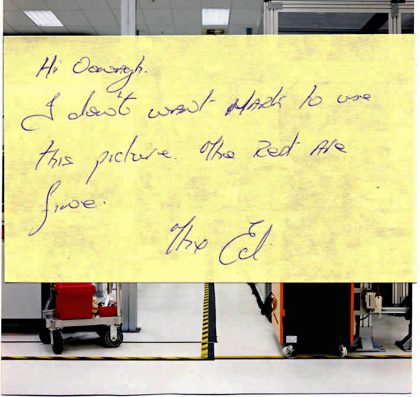 Hi
I don't want Mark to use
this picture. The Rest Are
fine.
Thx Ed